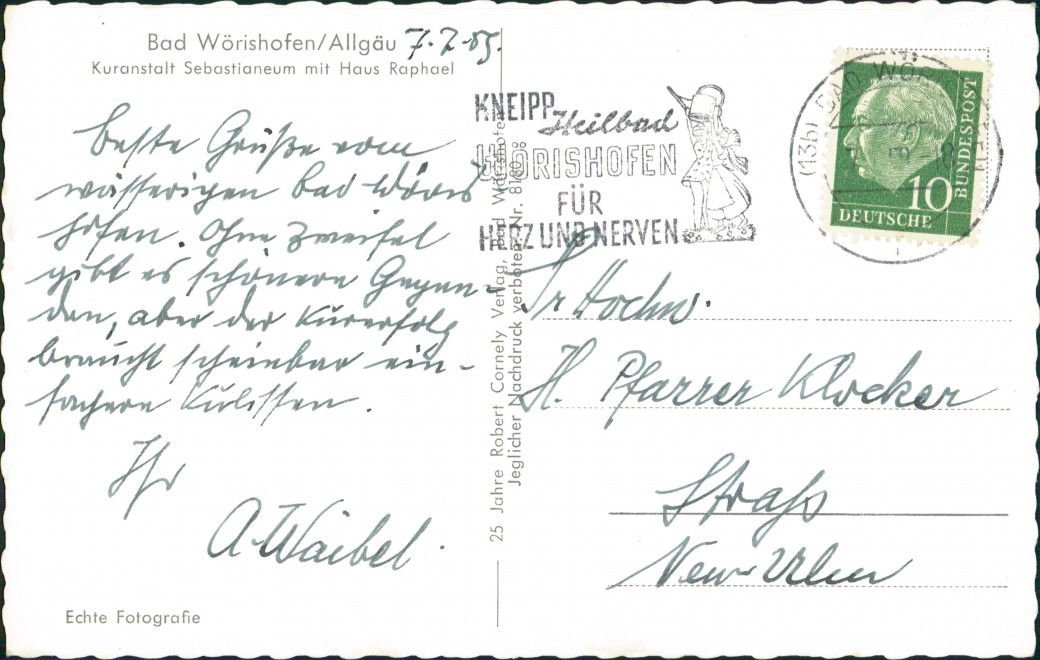 Bad Wörishofen/Allgäu 7.2.55.
Kuranstalt Sebastianeum mit Haus Raphael
beste Grüße vom
wässerigen Bad Wöris
hofen. Ohne Zweifel
gibt es schönere Gegen-
den, aber der Kurerfolg
braucht scheinbar ein-
fachere Kulissen.
Ihr
A. Waibel.
Echte Fotografie
25 Jahre Robert Cornely Verlag, Bad Wörishofen
Jeglicher Nachdruck verboten Nr.
KNEIPP
Heilbad
WÖRISHOFEN
FÜR
HERZ UND NERVEN
(13b) BAD WÖR
10
DEUTSCHE
BUNDESPOST
Sr Hochw.
H. Pfarrer Klocker
Strass
Neu-Ulm